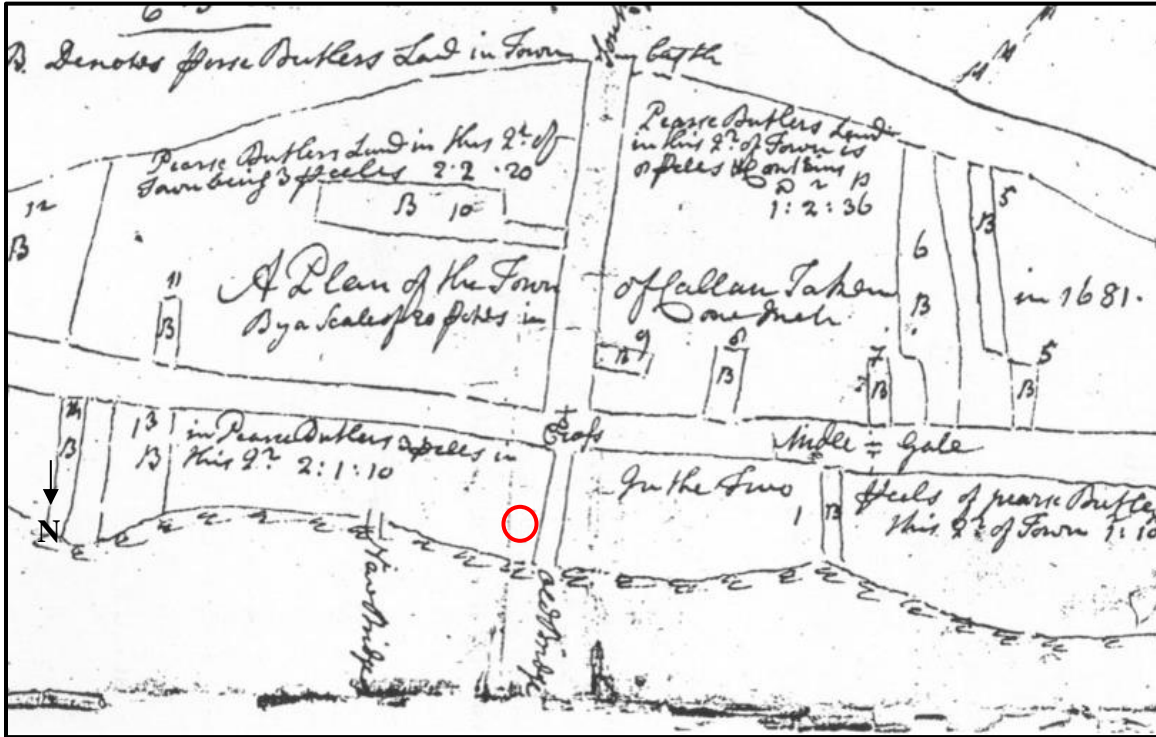 B. Denotes Perse Butlers Land in Town
Pearse Butlers Land in this Qr of
Town being 3 Peeles 2:2:20
Pearse Butlers Land
in this Qr of Town is
Peeles & Contains
1:2:36
12
B
B 10
6
B
B
5
11
B
A Plan of the Town of Callan Taken in 1681.
By a Scale of 20 Pches in One Inch
B 9
8
B
7
B
5
B
Cross
Midle Gate
B
13
B
in Pearse Butlers 3 peeles in
this Qr 2:1:10
In the Two
1
B
Peels of pearse Butle
this Qr of Town 1:10
N
New Bridge
Old Bridge